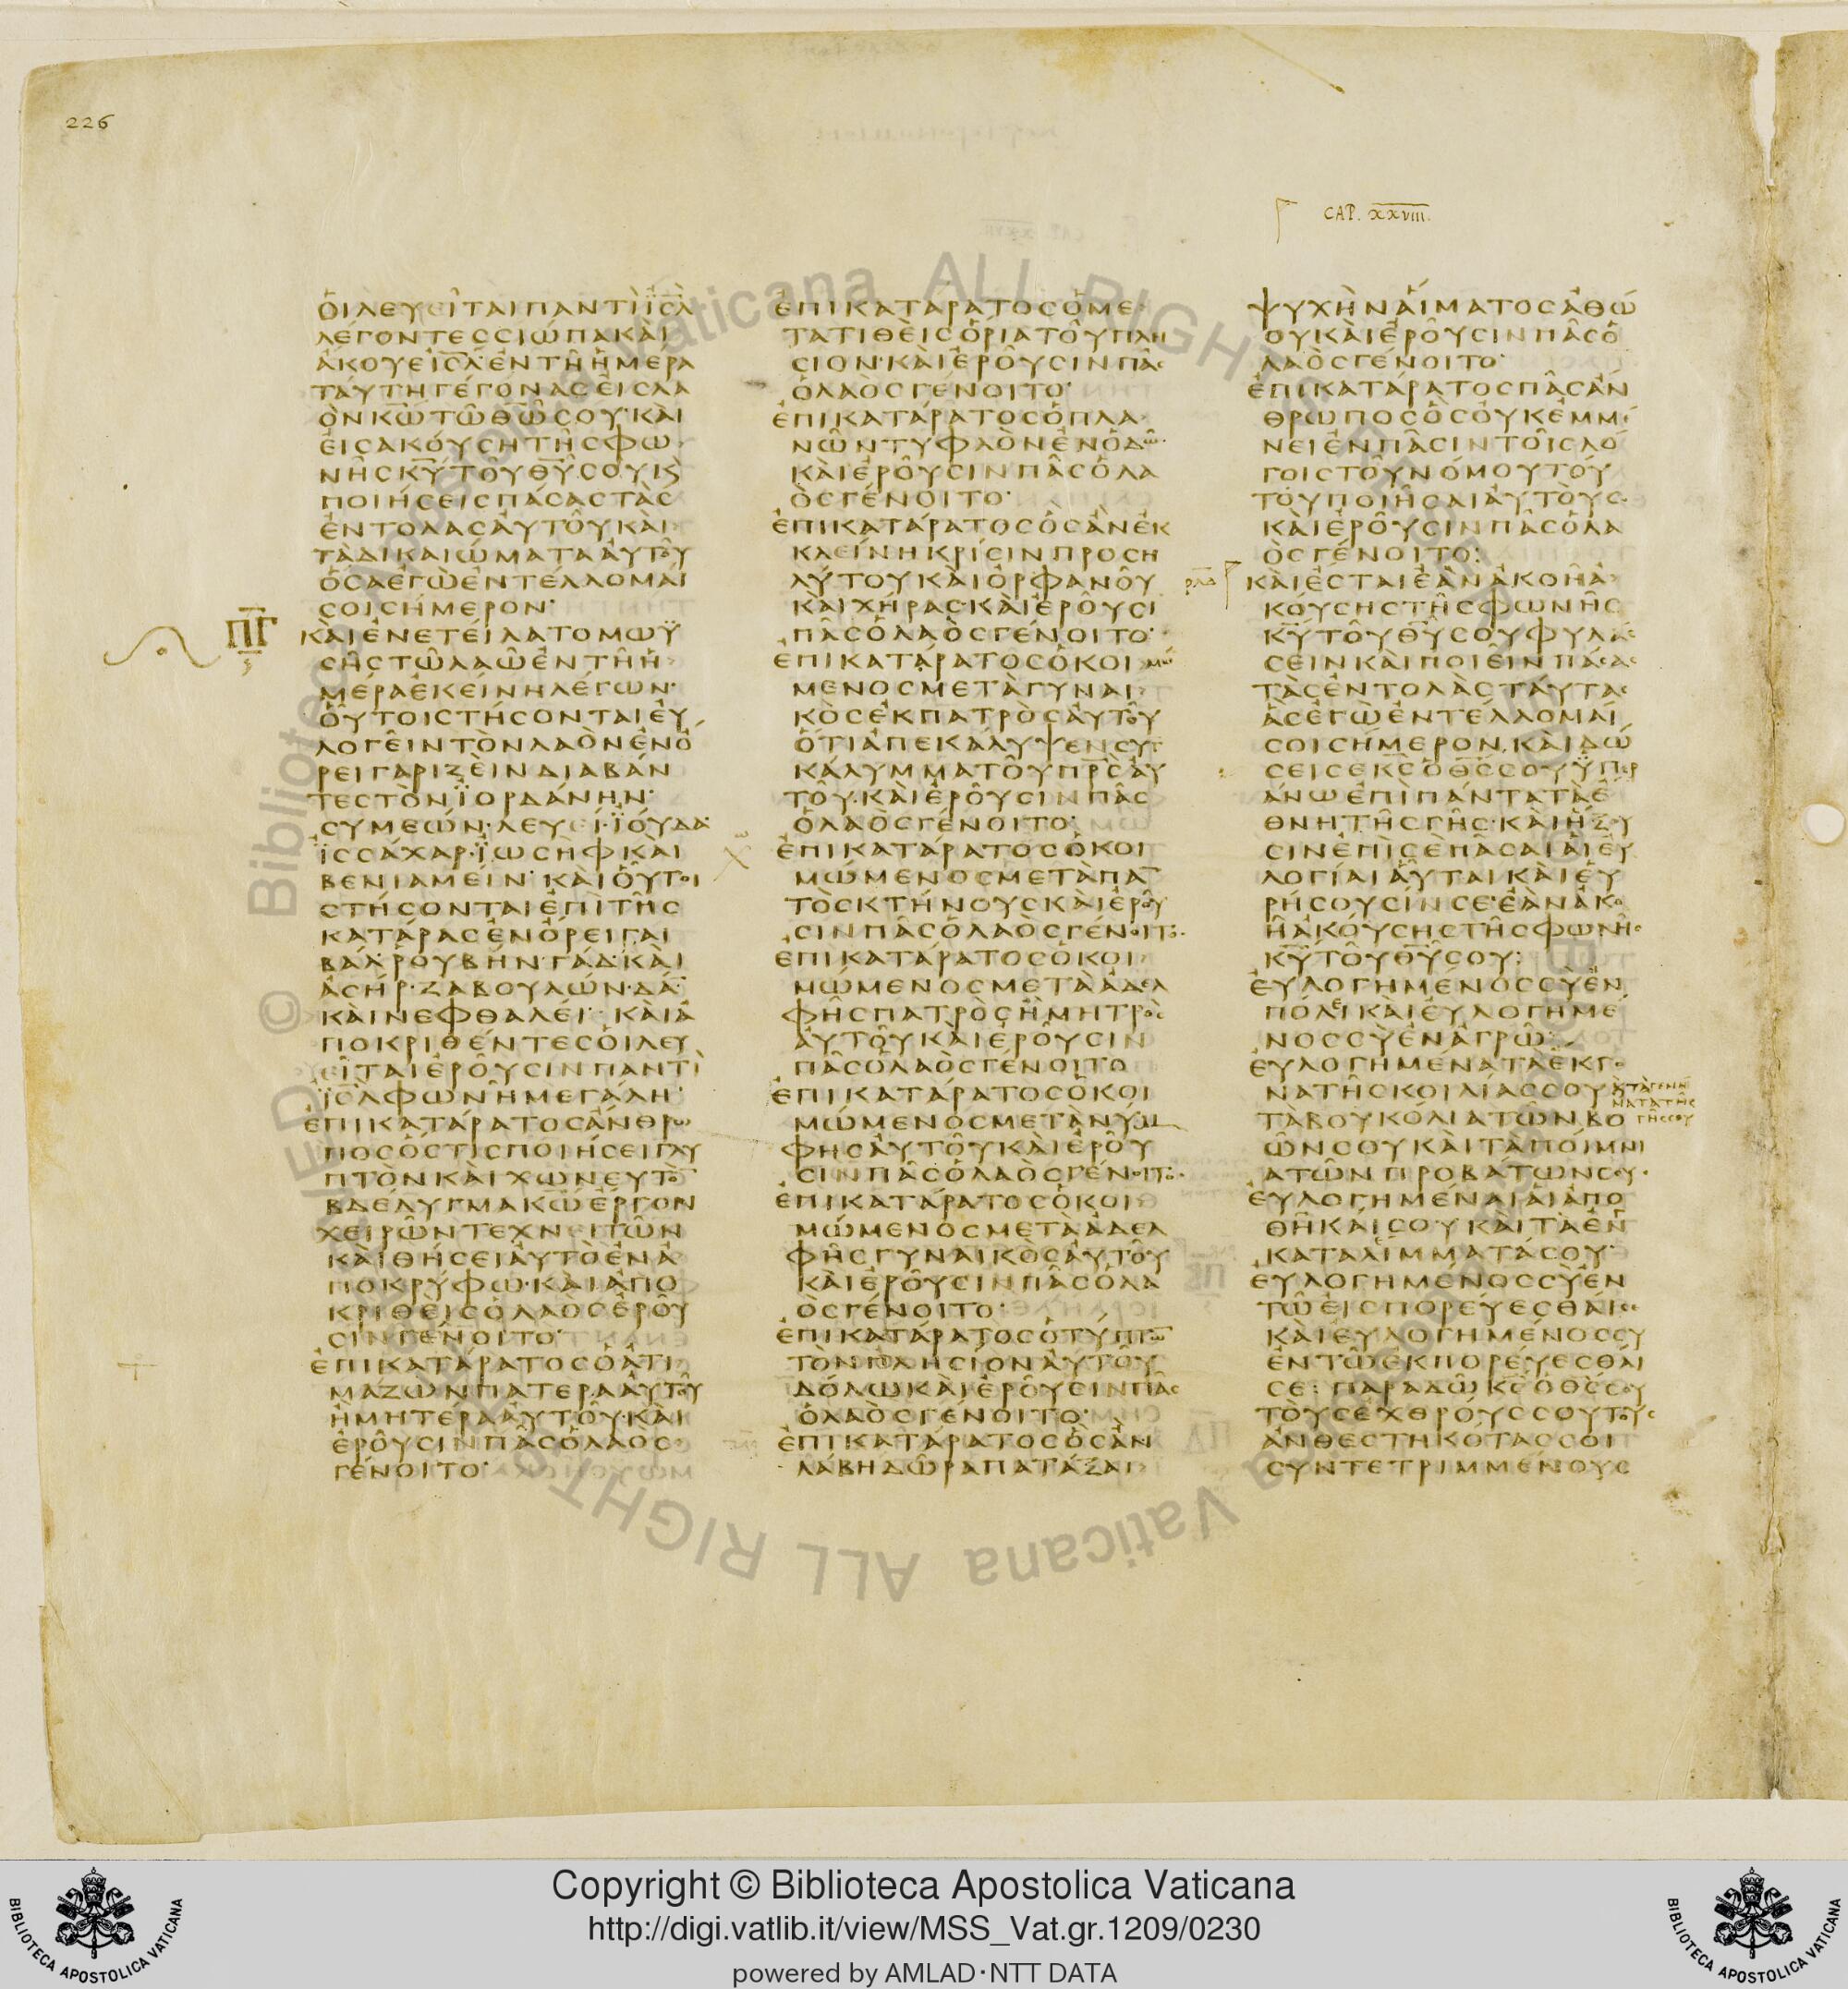 226
CAP. XXVIII.
ὁιλευεῖταιπαντὶϊσλ
λέγοντεςσιώπακαὶ
ἄκουεισλἐντῆἡμέρα
ταύτηγέγοναςεἰςλα
ὸνκωτῶθωσου·και
εἰσακόυσητῆςφω
νῆςκυτοῦθυσουκς
ποιήσειςπάσαςτὰς
ἐντολὰςἀυτοῦκαὶ
τὰδικαιώματαἀυτοῦ
ὅσαἐγὼἐντέλλομαί
σοισήμερον·
ΠΓ
κὰιἐνετείλατομωϋ
σῆςτῶλαῶἐντῆἡ
μέραἐκείνηλέγων·
ὁῦτοιστήσονταιἐυ
λογεῖντὸνλαὸνἐνὄ
ρειγαριζεὶνδιαβάν
τεςτὸνϊορδάνην·
συμεών·λευεί·ϊόυδα·
ϊσσάχαρ·ϊωσηφκαὶ
βενιαμείν·κὰιὁῦτοι
στήσονταιἐπὶτῆς
κατάραςἐνὄρειγαι
βάλ·ρουβήν·γάδ·κὰι
ἀσήρ·ζαβουλών·δά·
κὰινεφθαλεί·κὰιἀ
ποκριθέντεςὁιλευ
εῖταιἐροῦσινπαντὶ
ϊσλφωνῆμεγάλη·
ἐπικατάρατοςἄνθρω
ποςὅστιςποιήσειγλυ
πτὸνκὰιχωνευτὸ
βδέλυγμακωἔργον
χειρῶντεχνειτῶν
κὰιθήσειἀυτὸἐνἀ
ποκρύφω·κὰιἀπο
κριθεὶςὁλαὸςἐροῦ
σινγένοιτο·
ἐπικατάρατοςὁἀτι
μάζωνπατέραἀυτοῦ
ἢμητέραἀυτοῦ·κὰι
ἐροῦσινπᾶςὁλαὸς
γένοιτο·
ἐπικατάρατοςὁμε
τατιθεὶςὅριατοῦπλη
σίον·κὰιἐροῦσινπᾶς
ὁλαὸςγένοιτο·
ἐπικατάρατοςὁπλα
νῶντυφλὸνἐνὁδῶ·
κὰιἐροῦσινπᾶςὁλα
ὸςγένοιτο·
ἐπικατάρατοςὃςἂνἐκ
κλείνηκρίσινπροση
λύτουκὰιὀρφανοῦ
κὰιχήρας·κὰιἐροῦσι
πᾶςὁλαὸςγένοιτο·
ἐπικατάρατοςὁκοιμώ
μενοςμετὰγυναι
κὸςἐκπατρὸςἀυτοῦ
ὅτιἀπεκάλυψενσυγ
κάλυμματοῦπρσἀυ
τοῦ·κὰιἐροῦσινπᾶς
ὁλαὸςγένοιτο·
ἐπικατάρατοςὁκοι
μώμενοςμετὰπα
τὸςκτήνουςκὰιἐροῦ
σινπᾶςὁλαὸςγένοιτο·
ἐπικατάρατοςὁκοι
μώμενοςμετὰἀδελ
φῆςπατρὸςἢμητρὸς
ἀυτοῦκὰιἐροῦσιν
πᾶςὁλαὸςγένοιτο
ἐπικατάρατοςὁκοι
μώμενοςμετὰνύμ
φηςἀυτοῦκὰιἐροῦ
σινπᾶςὁλαὸςγένοιτο·
ἐπικατάρατοςὁκοι
μώμενοςμετὰἀδελ
φῆςγυναικὸςἀυτοῦ
κὰιἐροῦσινπᾶςὁλα
ὸςγένοιτο·
ἐπικατάρατοςὁτύπτω
τὸνπλησίονἀυτοῦ
δόλωκὰιἐροῦσινπᾶς
ὁλαὸςγένοιτο·
ἐπικατάρατοςὃςἂν
λάβηδῶραπατάξαι
ψυχὴναἵματοςἀθώ
ουκὰιἐροῦσινπᾶςὁ
λαὸςγένοιτο·
ἐπικατάρατοςπᾶςἄν
θρωποςὃςὀυκἐμμέ
νειἐνπᾶσιντοῖςλό
γοιςτοῦνόμουτού
τουποιῆσαιἀυτούς·
κὰιἐροῦσινπᾶςὁλα
ὸςγένοιτο:
κὰιἔσταιἐὰνἀκοῆἀ
κούσηςτῆςφωνῆς
κυτοῦθυσουφυλάσ
σεινκὰιποιεῖνπάσας
τὰςἐντολὰςταύτας
ἃςἐγὼἐντέλλομαί
σοισήμερον,κὰιδώ
σεισεκσὁθσσουϋπερ
άνωἐπὶπάντατὰἔ
θνητῆςγῆς·κὰιἥξου
σινἐπὶσὲπᾶσαιἁιἐυ
λογίαιἁῦταικὰιἑυ
ρήσουσίνσε·ἐὰνἀκο
ῆἀκούσηςτῆςφωνῆς
κυτοῦθυσου:
ἐυλογημένοςσὺἐν
πόλεικὰιἐυλογημέ
νοςσὺἐνἀγρῶ·
ἐυλογημένατὰἔκγο
νατῆςκοιλίαςσου
κτὰγενή
ματατῆς
γῆςσου
τὰβουκόλιατῶνβο
ῶνσουκὰιτὰποίμνι
ατῶνπροβάτωνσου·
ἐυλογημέναιἁιἀπο
θῆκαίσουκὰιτὰἐν
καταλίμματάσου·
ἐυλογημένοςσὺἐν
τῶεἰσπορεύεσθαί
κὰιἐυλογημένοςσυ
ἐντῶἐκπορεύεσθαί
σε:παραδῶκσὁθσσου
τοὺςἐχθρούςσουτοὺς
ἀνθεστηκόταςσοι
συντετριμμένους
Copyright © Biblioteca Apostolica Vaticana
http://digi.vatlib.it/view/MSS_Vat.gr.1209/0230
powered by AMLAD·NTT DATA
BIBLIOTECA APOSTOLICA VATICANA
BIBLIOTECA APOSTOLICA VATICANA